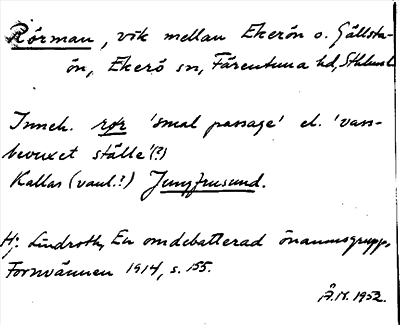 Rörman, vik mellan Ekerön o. Gällsta-
ön, Ekerö sn, Färentuna hd, Sthlmsl
Inneh. rør 'smal passage' el. 'vass-
bevuxet ställe'(?)
Kallas (vanl.?) Jungfrusund.
Hj. Lindroth, En omdebatterad önamnsgrupp,
Fornvännen 1914, s. 155.
Å.H. 1952.